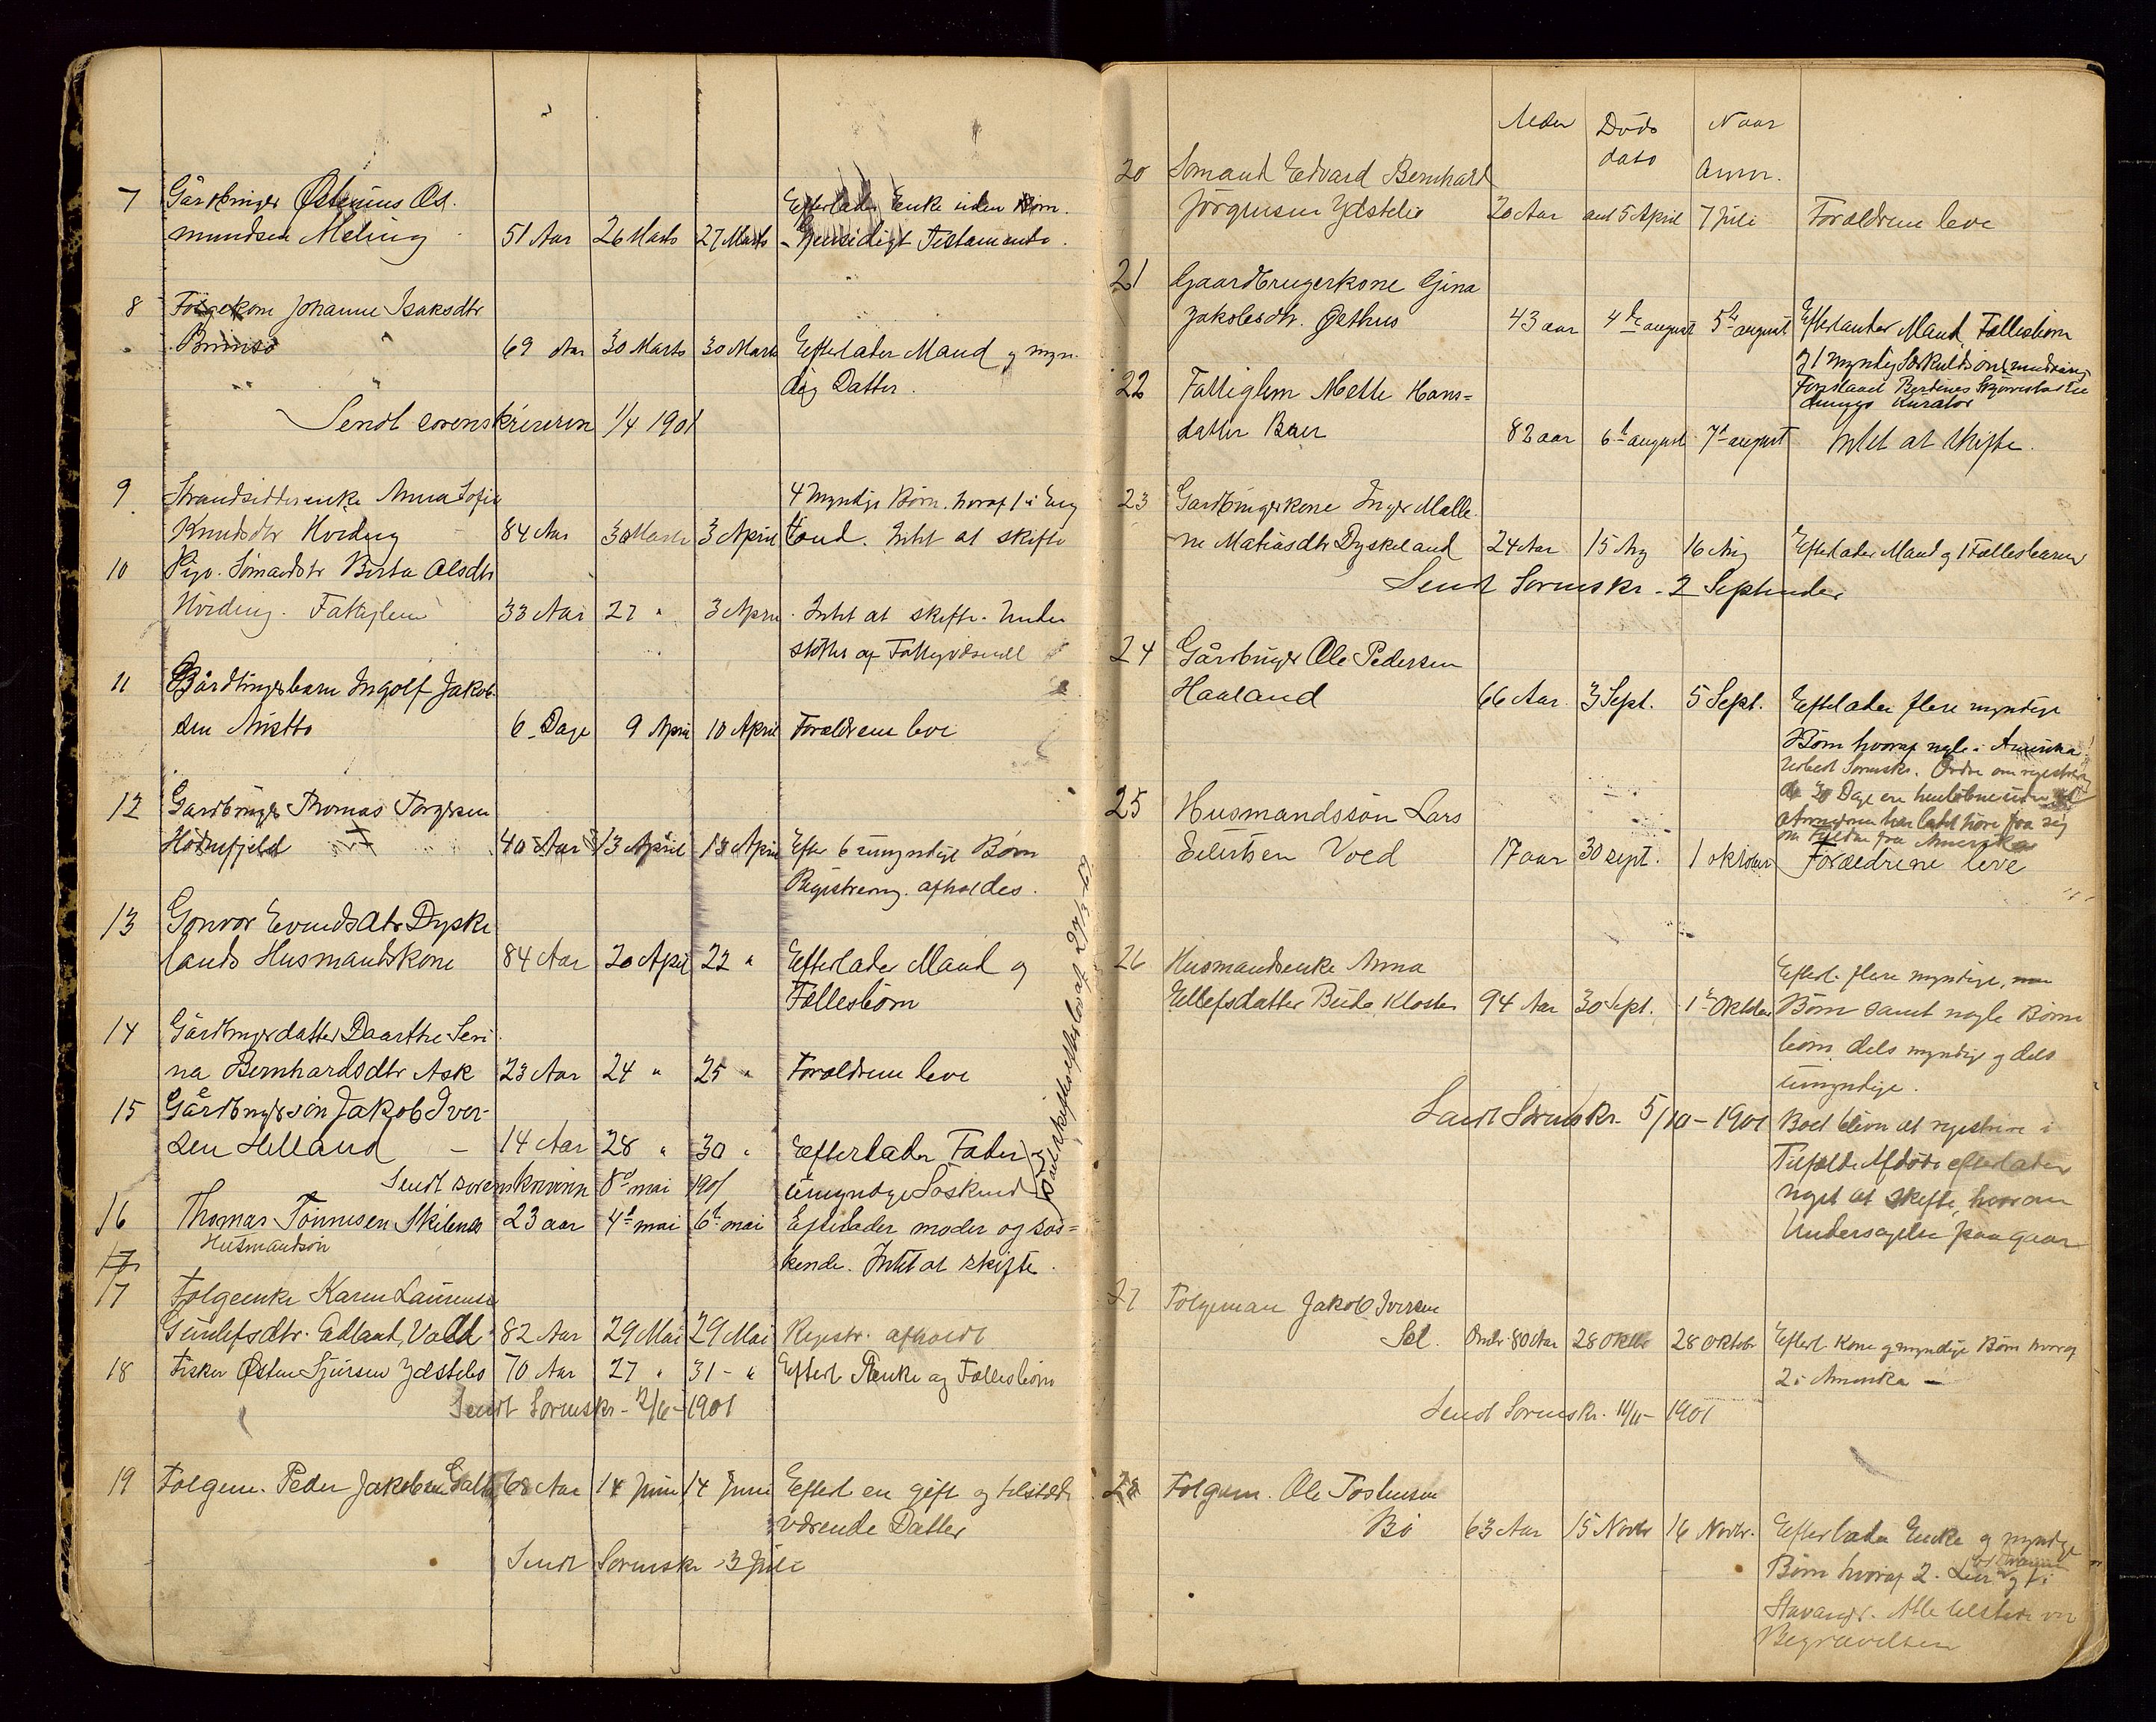 7 Gårdbruger Østenius Os-
mundsen Meling 51 Aar 26 Marts 27 Marts
Efterlader Enke uden Børn.
- Gjensidigt Testamente.
8 Følgekone Johanne Isaksdtr
Brimsø 69 Aar 30 Marts 30 Marts Efterlader Mand og myn-
dig Datter.
Sendt sorenskriveren 1/4 1901
9 Strandsidderenke Anna Sofie
4 myndige Børn. hvoraf 1 i Eng
Knudsdtr Hviding 84 Aar 30 Marts 3 April land. Intet at skifte
10 Pige. Sømandsdtr Berta Olsdtr
Hviding. Fattiglem 33 Aar 27 " 3 April Intet at skifte. Under
støttes af Fattigvæsenet
11 Gårdbrugerbarn Ingolf Jakob-
sen Austbø 6 Dage 9 April 10 April Forældrene leve
12 Gardbruger Thomas Torgersen
Hodnefjeld 40 Aar 13 April 13 April Efter 6 umyndige Børn
Registrering afholdes.
13 Gonvor Evindsdtr Dyske
lands Husmandskone 84 Aar 20 April 22 " Efterlader Mand og
Fællesbørn
14 Gårdbrugerdatter Daarthe Seri
na Bernhardsdtr Ask 23 Aar 24 " 25 " Forældrene leve
15 Gårdbrugersøn Jakob Iver-
sen Helland - 14 Aar 28 " 30 " Efterlader Fader og
Sendt sorenskriveren 8d mai 1901 umyndige Søskend
16 Thomas Tønnesen Skilenes 23 aar 4d mai 6d mai Efterlader moder og søs=
Husmandsøn
kende. Intet at skifte.
17
17 Følgeenke Karen Laurense
Gunlefsdtr. Edland, Vold 82 Aar 29 Mai 29 Mai Registr. afholdt
18 Fisker Østen Sjursen Ydstebø 70 Aar 27 " 31 - " Efterl. Enke og Fællesbørn
Sendt Sorenskr - 12/6 - 1901
19 Følgem. Peder Jakobsen Galta 68 Aar 14 Juni 14 Juni Efterl en gift og tilstede
værende Datter
Sendt Sorenskr 3 Juli
Alder Døds dato Naar Anm.
20 Sømand Edvard Bernhard
Jörgensen Ydstebø 20 Aar ant 5 April 7 Juli Forældrene leve
21 Gaardbrugerkone Gina
Jakobsdtr. Østhus 43 aar 4de august 5te august Efterlader Mand, Fællesbørn
og 1 myndig Særkuldsøn
22 Fattiglem Mette Hans=
datter Bær 82 aar 6d august 7d august Intet at skifte.
23 Gardbrugerkone Inger Malle
ne Matiasdtr Dyskeland 24 Aar 15 Aug 16 Aug Efterlader Mand og 1 Fællesbarn
Sendt Sorenskr. 2 September
24 Gårdbruger Ole Pedersen
Haaland 66 Aar 3 Sept. 5 Sept. Efterlader flere myndige
Børn hvoraf nogle i Amerika
Sorenskr. Ordre om registrering
25 Husmandssön Lars
Eilertsen Vold 17 aar 30 sept. 1 oktober Forældrene leve
26 Husmandsenke Anna
Efterl. flere myndige
Ellefsdatter Bude Kloster 94 Aar 30 Sept. 1 Oktober Børn samt nogle Børne
børn dels myndige og dels
umyndige.
Sendt Sorenskr. 5/10 - 1901 Boet bliver at registrere i
Tilfælde Afdøde efterlader
noget at skifte, hvorom
Undersøgelse paagaar
27 Følgeman Jakob Iversen
Sel. Omtr. 80 Aar 28 Oktbr 28 Oktobr Efterl. Kone og myndige Børn hvoraf
2 i Amerika -
Sendt Sorenskr. 11/11 - 1901
28 Følgem. Ole Tostensen
Bø 63 Aar 15 Novbr 16 Novbr. Efterlader Enke og myndige
Børn hvoraf 2. og 1 i
Stavanger. Alle tilstede ved
Begravelsen